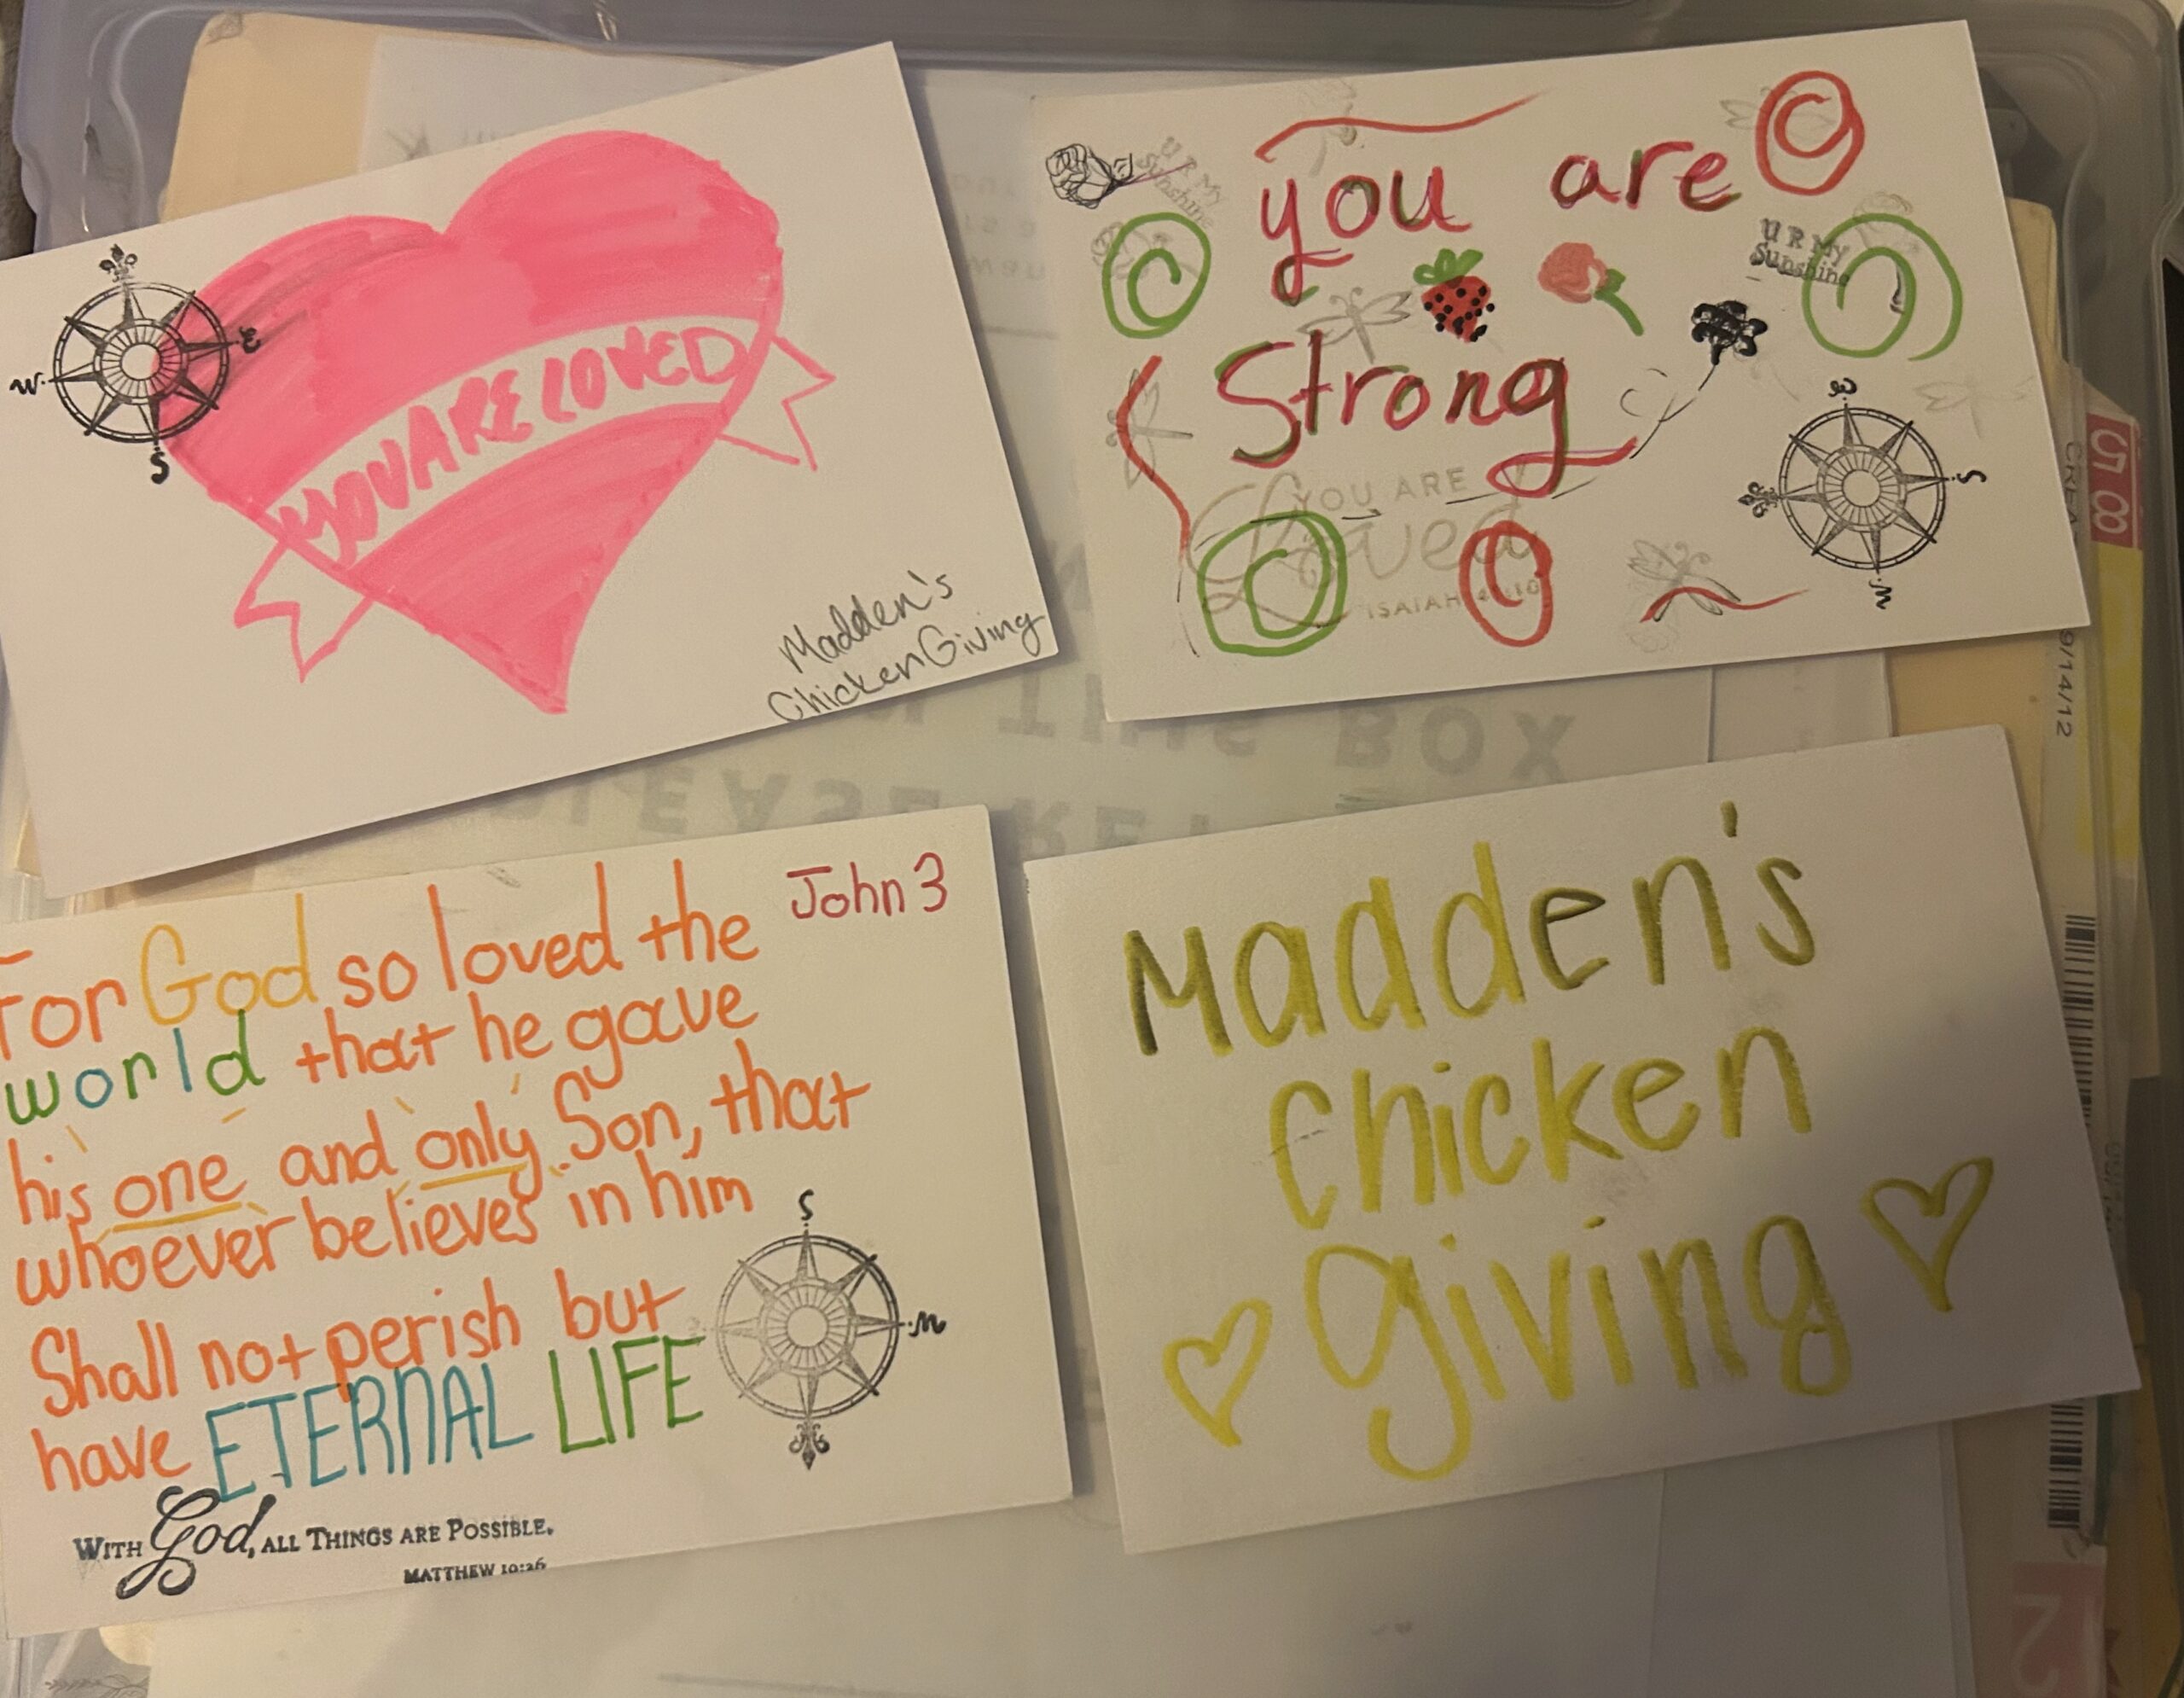 YOU ARE LOVED
W
E
S
Madden's
Chicken Giving
you are
Strong
U R My
Sunshine
U R My
Sunshine
YOU ARE
Loved
ISAIAH
E
S
N
John 3
For God so loved the
world that he gave
his one and only Son, that
whoever believes in him
Shall not perish but
have ETERNAL LIFE
S
N
WITH God, ALL THINGS ARE POSSIBLE.
MATTHEW 19:26
Madden's
Chicken
giving
PLEASE RE
THIS BOX
58
9/14/12
2